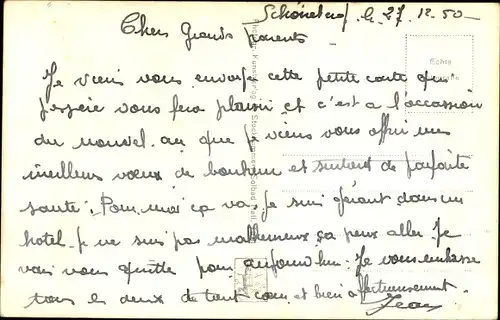 Schönebuf le 27 12. 50 -
Chers Grands parents
Je viens vous envoyer cette petite carte qui
j'espère vous fera plaisir et c'est a l'occassion
du nouvel. an que je viens vous offrir mes
meilleurs vœux de bonheur et surtout de parfaite
santé. Pour moi ça va. Je suis gérant dans un
hotel. je ne suis pas malheureux ça peux aller Je
vais vous quitter pour aujourd'hui. Je vous embrasse
tous les deux de tout cœur et bien affectueusement.
Jean
Echte